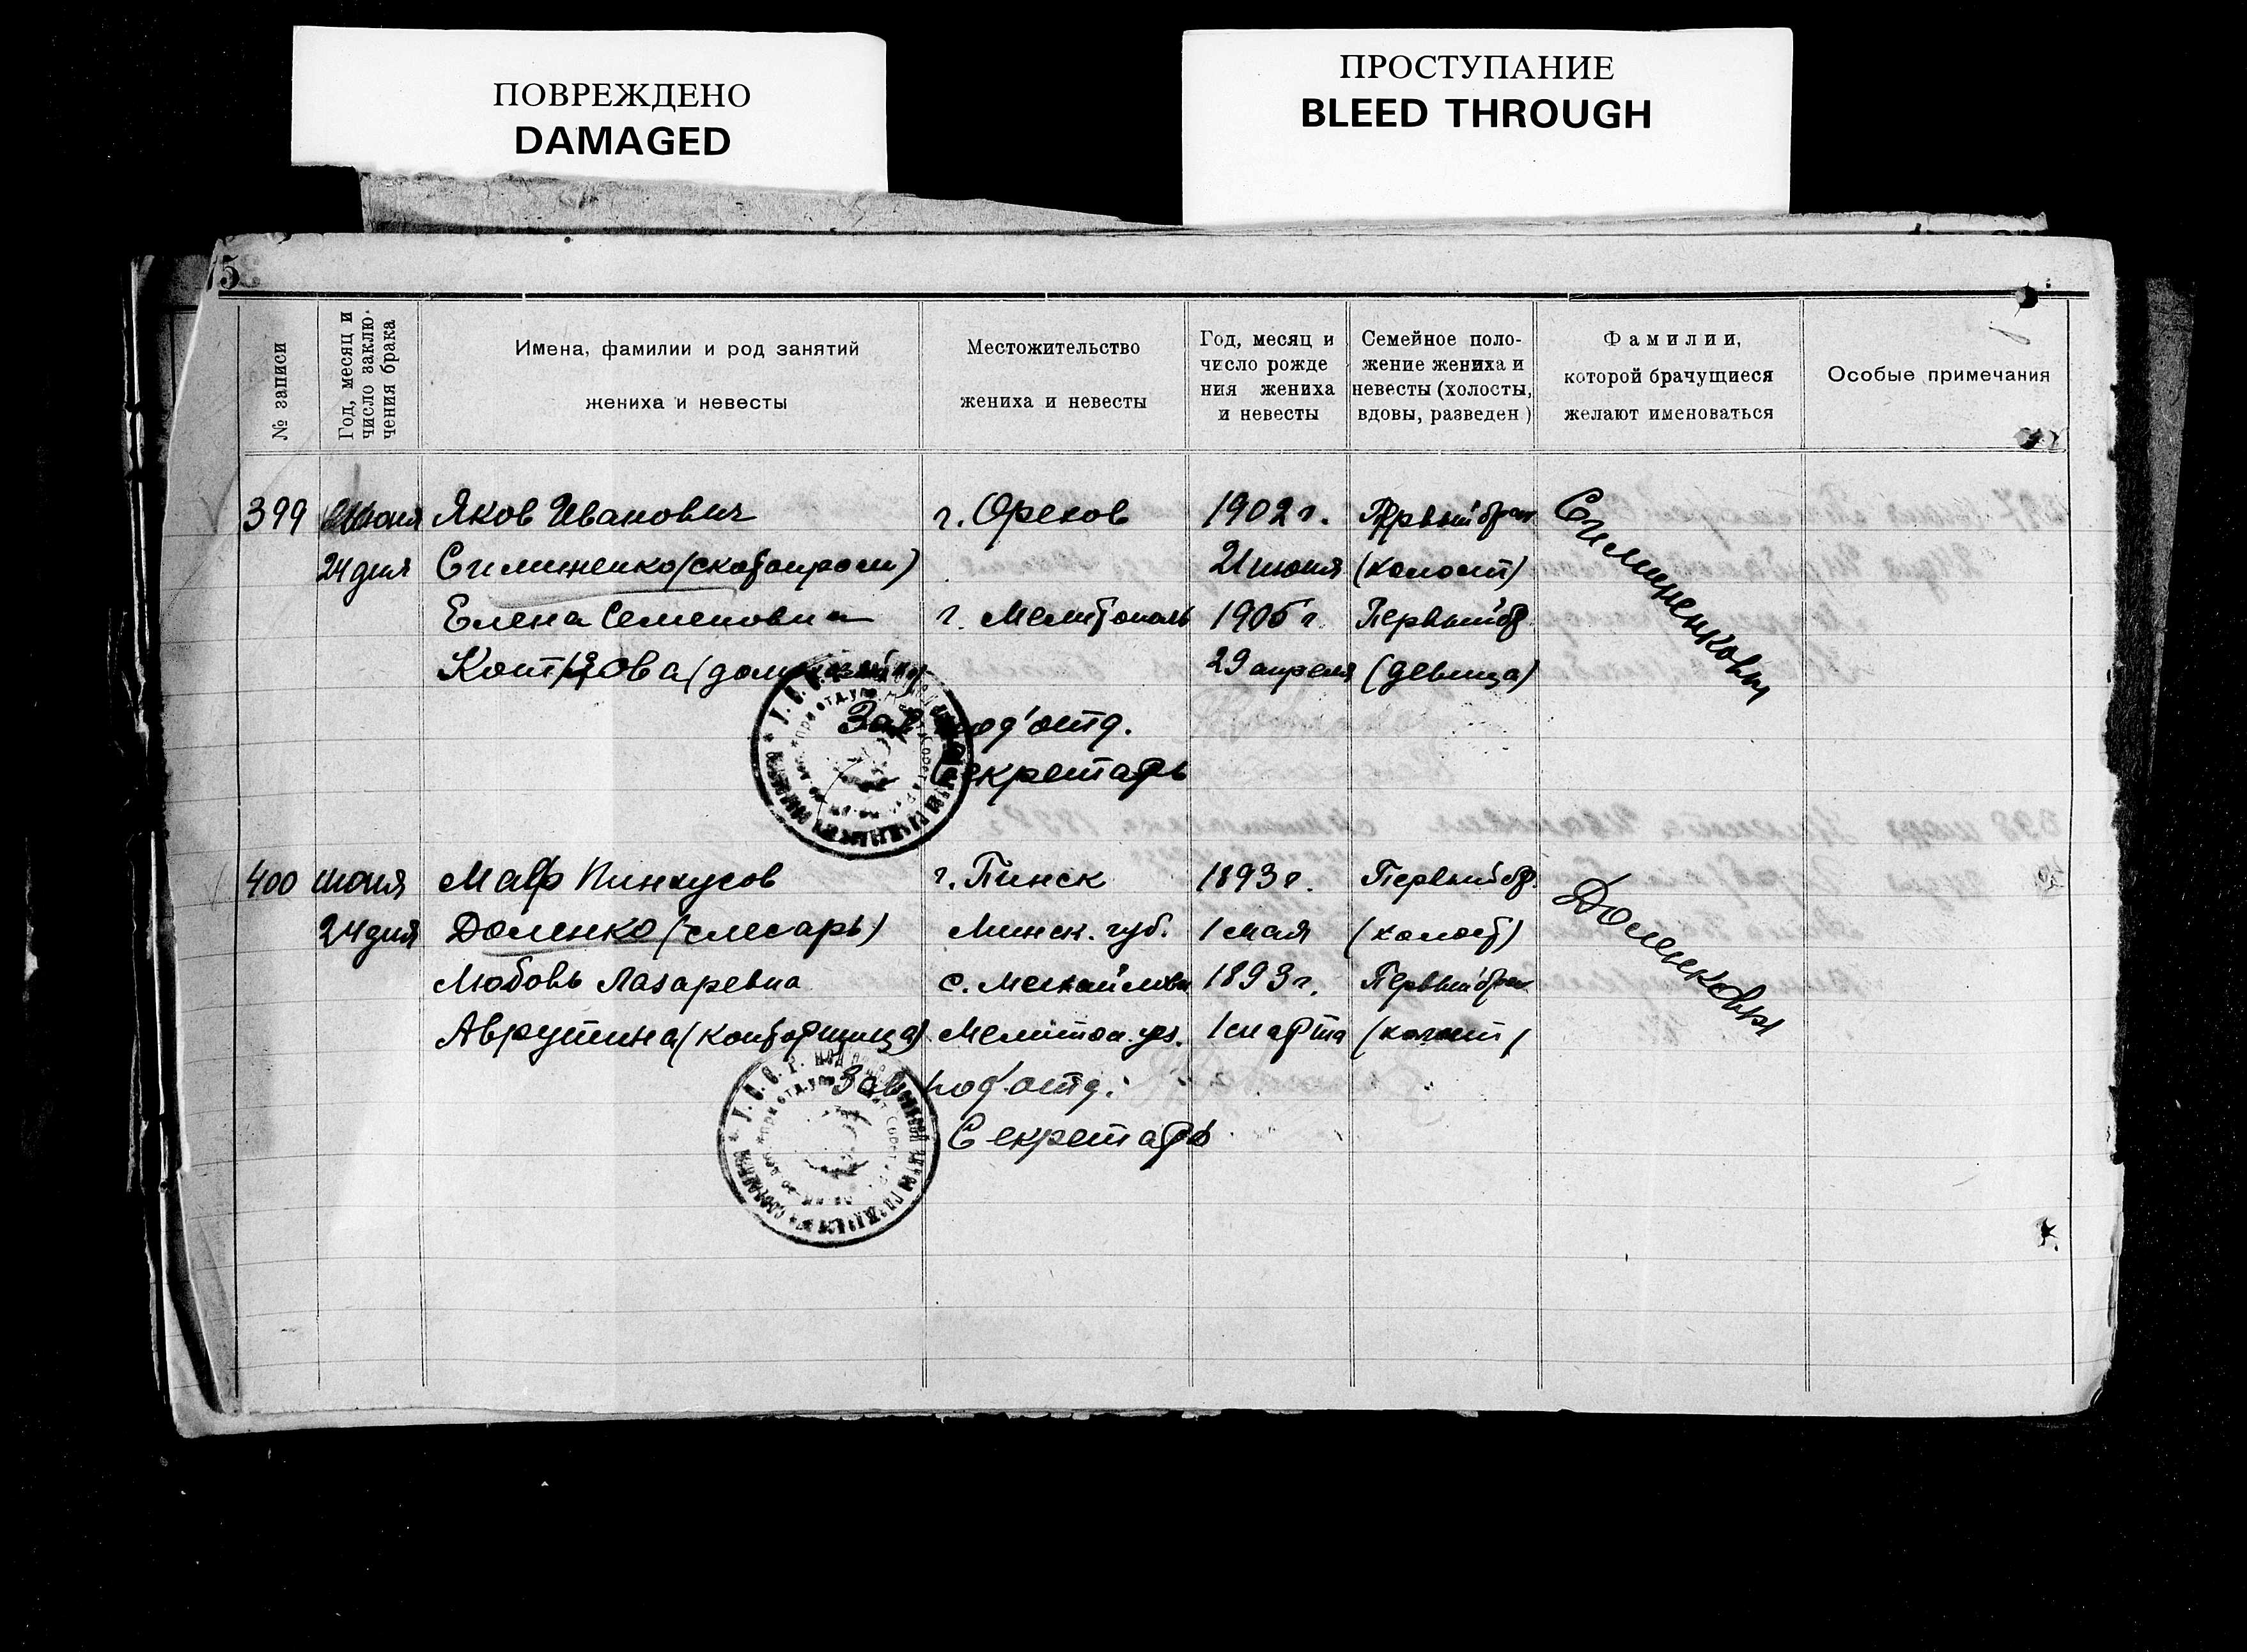 ПОВРЕЖДЕНО
DAMAGED
ПРОСТУПАНИЕ
BLEED THROUGH
№ записи
Год, месяц и
число заклю-
чения брака
Имена, фамилии и род занятий
жениха и невесты
Местожительство
жениха и невесты
Год, месяц и
число рожде
ния жениха
и невесты
Семейное поло-
жение жениха и
невесты (холосты,
вдовы, разведен)
Фамилии,
которой брачущиеся
желают именоваться
Особые примечания
399 июня Яков Иванович г. Орехов 1902 г. Первый брак
24 дня (скотопром) 21 июня (холост)
Елена Семеновна г. Мелитополь 1905 г. Первый бр
29 апреля (девица)
Зав под'отд.
Секретарь
400 июня Маер Пинхусов г. Пинск 1893 г. Первый бр.
24 дня Доленко (слесарь) Минск. губ. 1 мая (холост)
Доленковы
Любовь Лазаревна с. Михайловка 1893 г. Первый брак
Аврутина (конторщица) Мелитоп. уез. 1 марта (холост)
Зав под'отд.
Секретарь